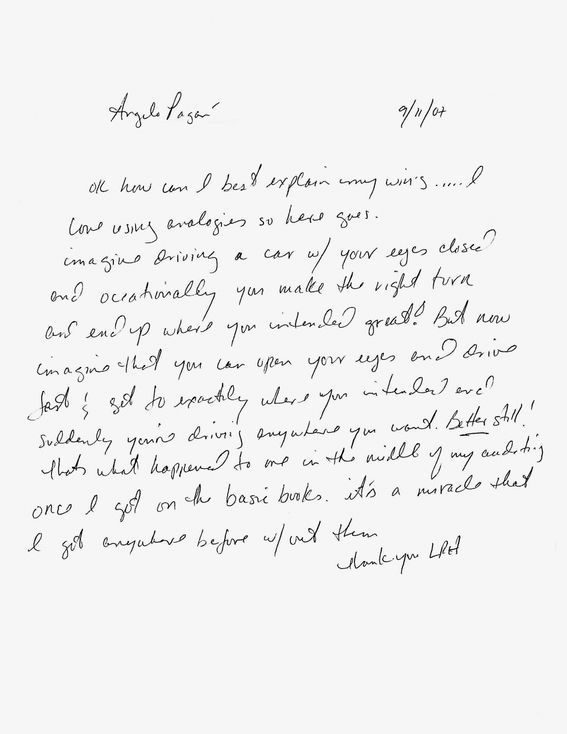 Angelo Pagán 9/11/07
OK how can I best explain my wins.....I
love using analogies so here goes.
imagine driving a car w/ your eyes closed
and occationally you make the right turn
and end up where you intended great! But now
imagine that you can open your eyes and drive
fast & get to exactly where you intended and
suddenly you're driving anywhere you want. Better still!
thats what happened to me in the middle of my auditing
once I got on the basic books. it's a miracle that
I got anywhere before w/out them
thank you LRH